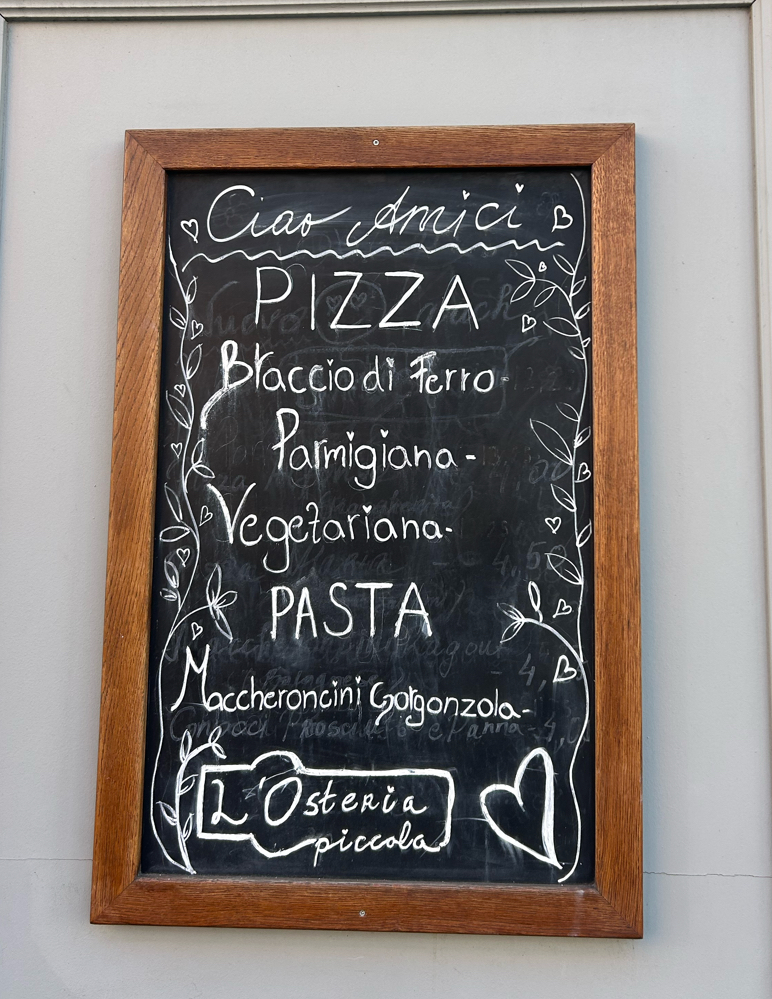 Ciao Amici
PIZZA
Braccio di Ferro-
Parmigiana-
Vegetariana-
PASTA
Maccheroncini Gorgonzola-
L'Osteria
piccola